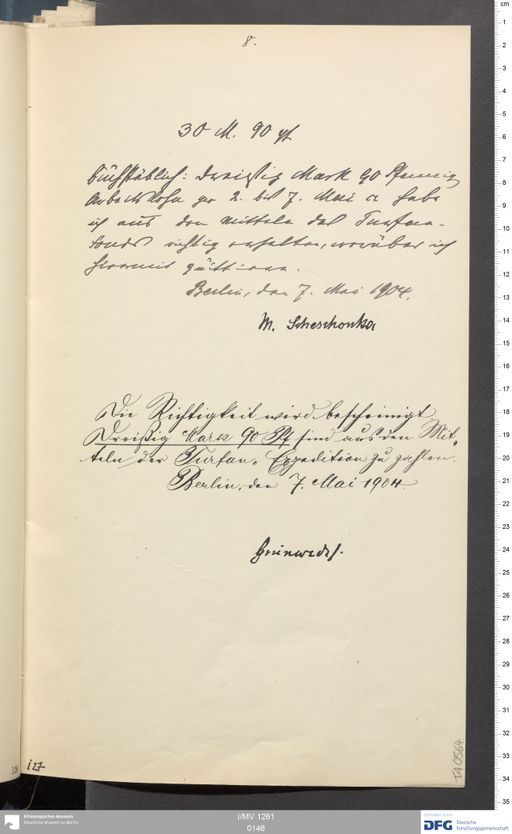 8.
30 M. 90 Pf
Buchstäblich: Dreißig Mark 90 Pfennig
Arbeitslohn pr 2. bis 7. Mai a habe
ich aus den Mitteln des Turfan-
fonds richtig erhalten, worüber ich
hiermit quittiere.
Berlin, den 7. Mai 1904.
M. Scheschonka
Die Richtigkeit wird bescheinigt
Dreißig Mark 90 Pf sind aus den Mit-
teln der Turfan-Expedition zu zahlen.
Berlin, den 7. Mai 1904.
Grünwedel.
127
TA 0564
Ethnologisches Museum
Staatliche Museen zu Berlin
I/MV 1261
0146
Gefördert durch
DFG Deutsche
Forschungsgemeinschaft
cm
1
2
3
4
5
6
7
8
9
10
11
12
13
14
15
16
17
18
19
20
21
22
23
24
25
26
27
28
29
30
31
32
33
34
35